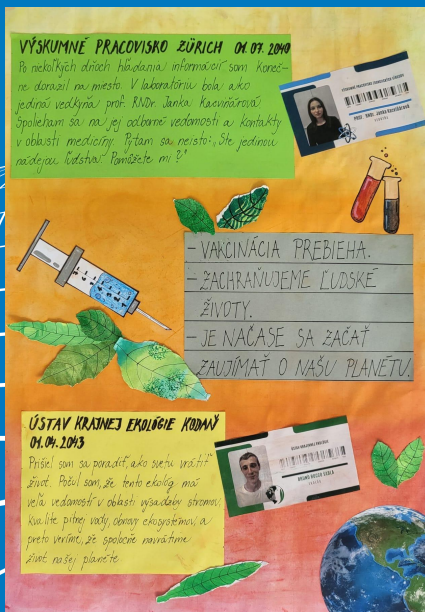 VÝSKUMNÉ PRACOVISKO ZÜRICH 01.07.2040
Po niekoľkých dňoch hľadania informácií som koneč-
ne dorazil na miesto. V laboratóriu bola ako
jediná vedkyňa prof. RNDr. Janka
Spolieham sa na jej odborné vedomosti a kontakty
v oblasti medicíny. Pýtam sa neisto: „Ste jedinou
nádejou ľudstva. Pomôžete mi?"
- VAKCINÁCIA PREBIEHA.
- ZACHRAŇUJEME ĽUDSKÉ
ŽIVOTY.
- JE NAČASE SA ZAČAŤ
ZAUJÍMAŤ O NAŠU PLANÉTU.
ÚSTAV KRAJNEJ EKOLÓGIE KODAŇ
01.04.2043
Prišiel som sa poradiť, ako svetu vrátiť
život. Počul som, že tento ekológ má
veľa vedomostí v oblasti výsadby stromov,
kvalite pitnej vody, obnovy ekosystémov, a
preto veríme, že spoločne navrátime
život našej planéte